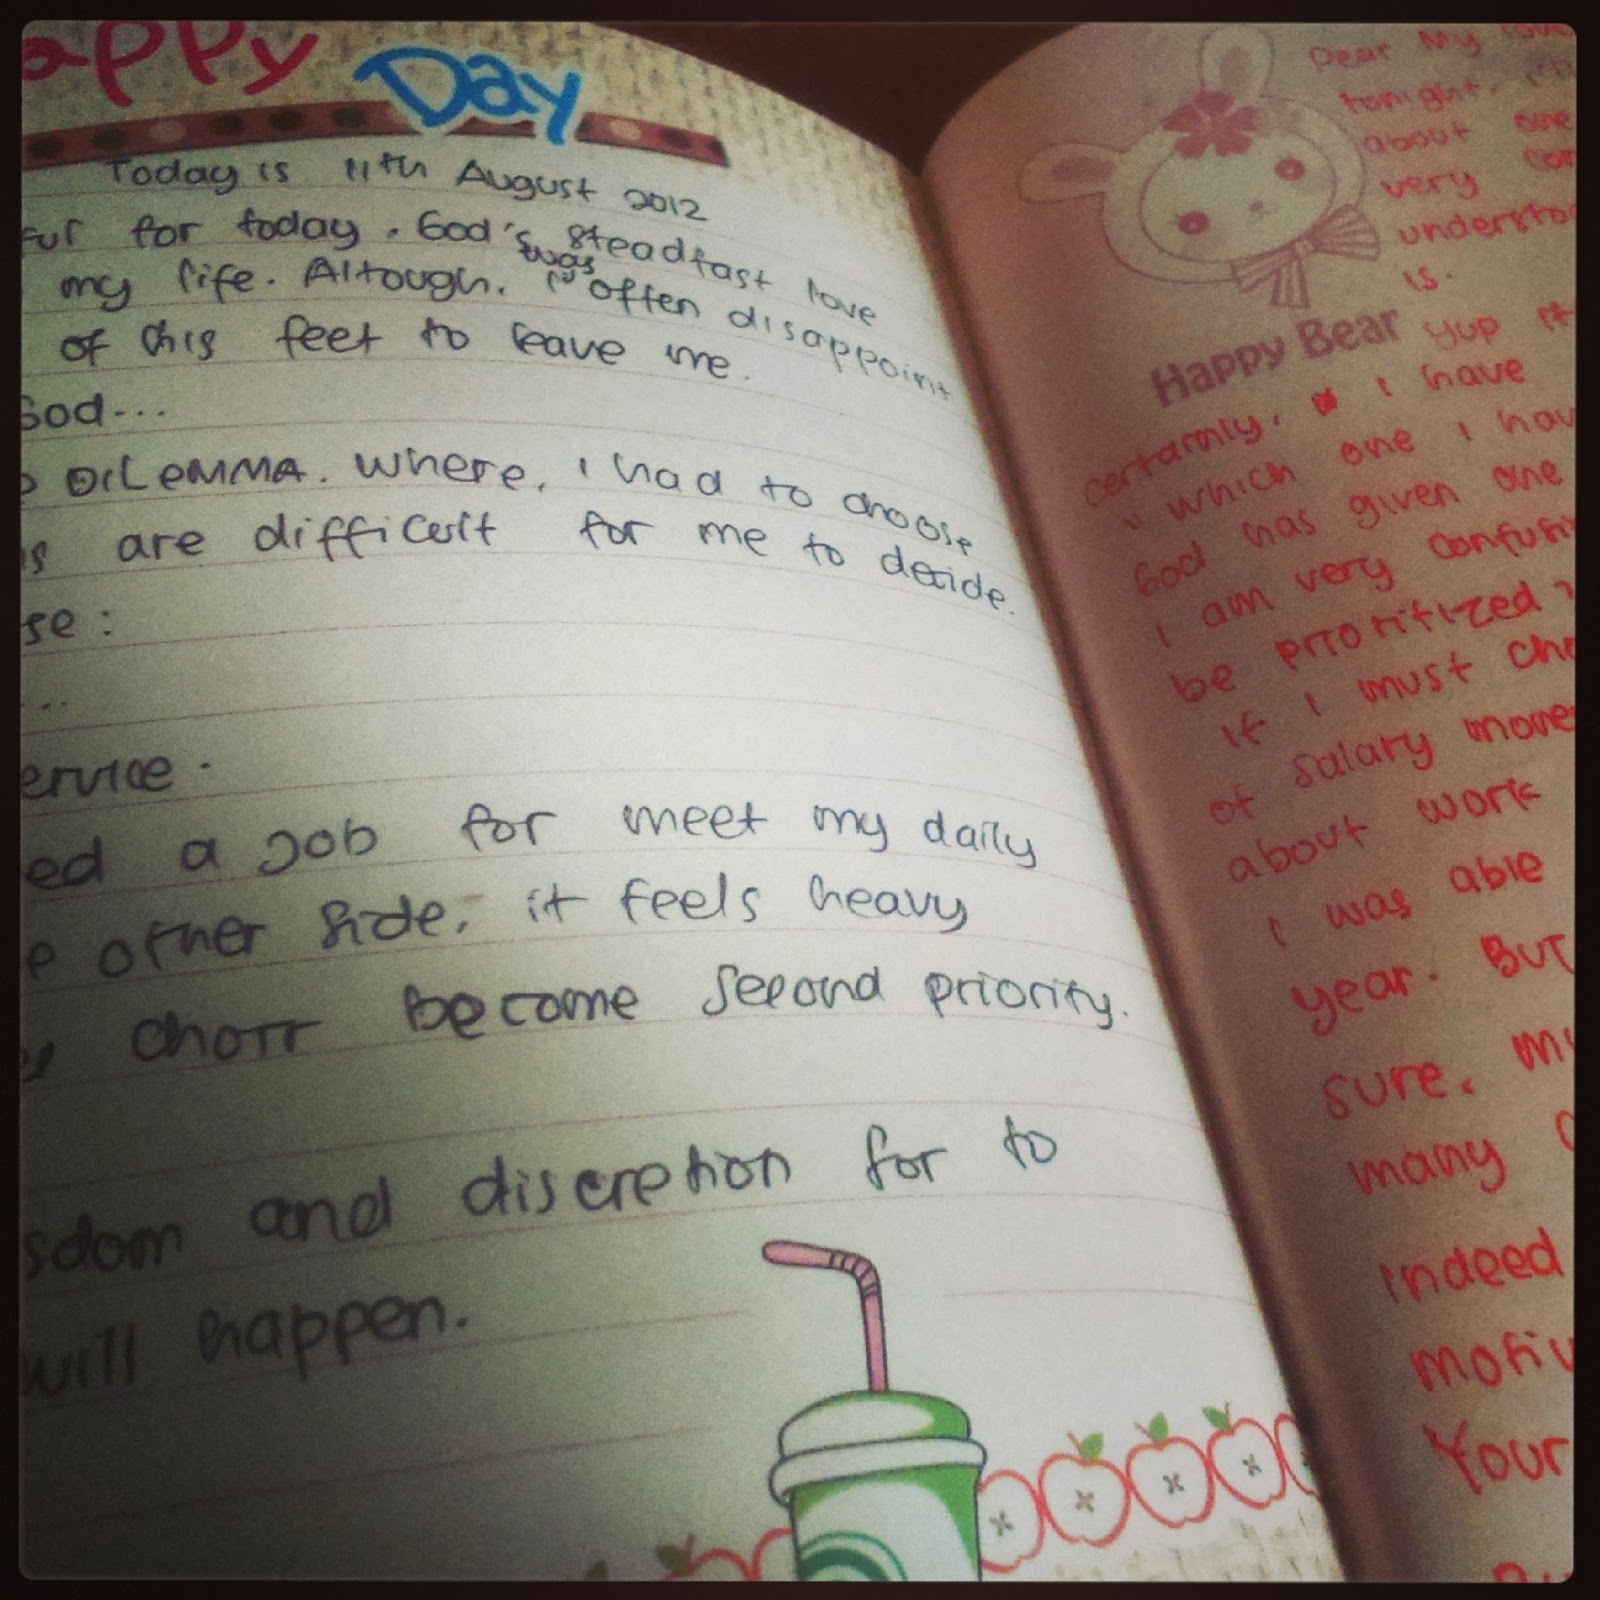 appy Day
Today is 11th August 2012
ful for today. God's steadfast love
was
my life. Altough, I often disappoint
of this feet to leave me.
God...
DILEMMA. Where, I had to choose
are difficult for me to decide.
se:
...
ervice.
ed a Job for meet my daily
e other side, it feels heavy
choir become second priority.
sdom and discretion for to
will happen.
Dear My
tonight,
about one
very
understo
is.
Happy Bear
yup it
certainly, I have
" which one I hav
God has given one
I am very confusi
be prioritized?
if I must cho
of salary mone
about work
I was able
year. But
sure, m
many
indeed
motiv
Your